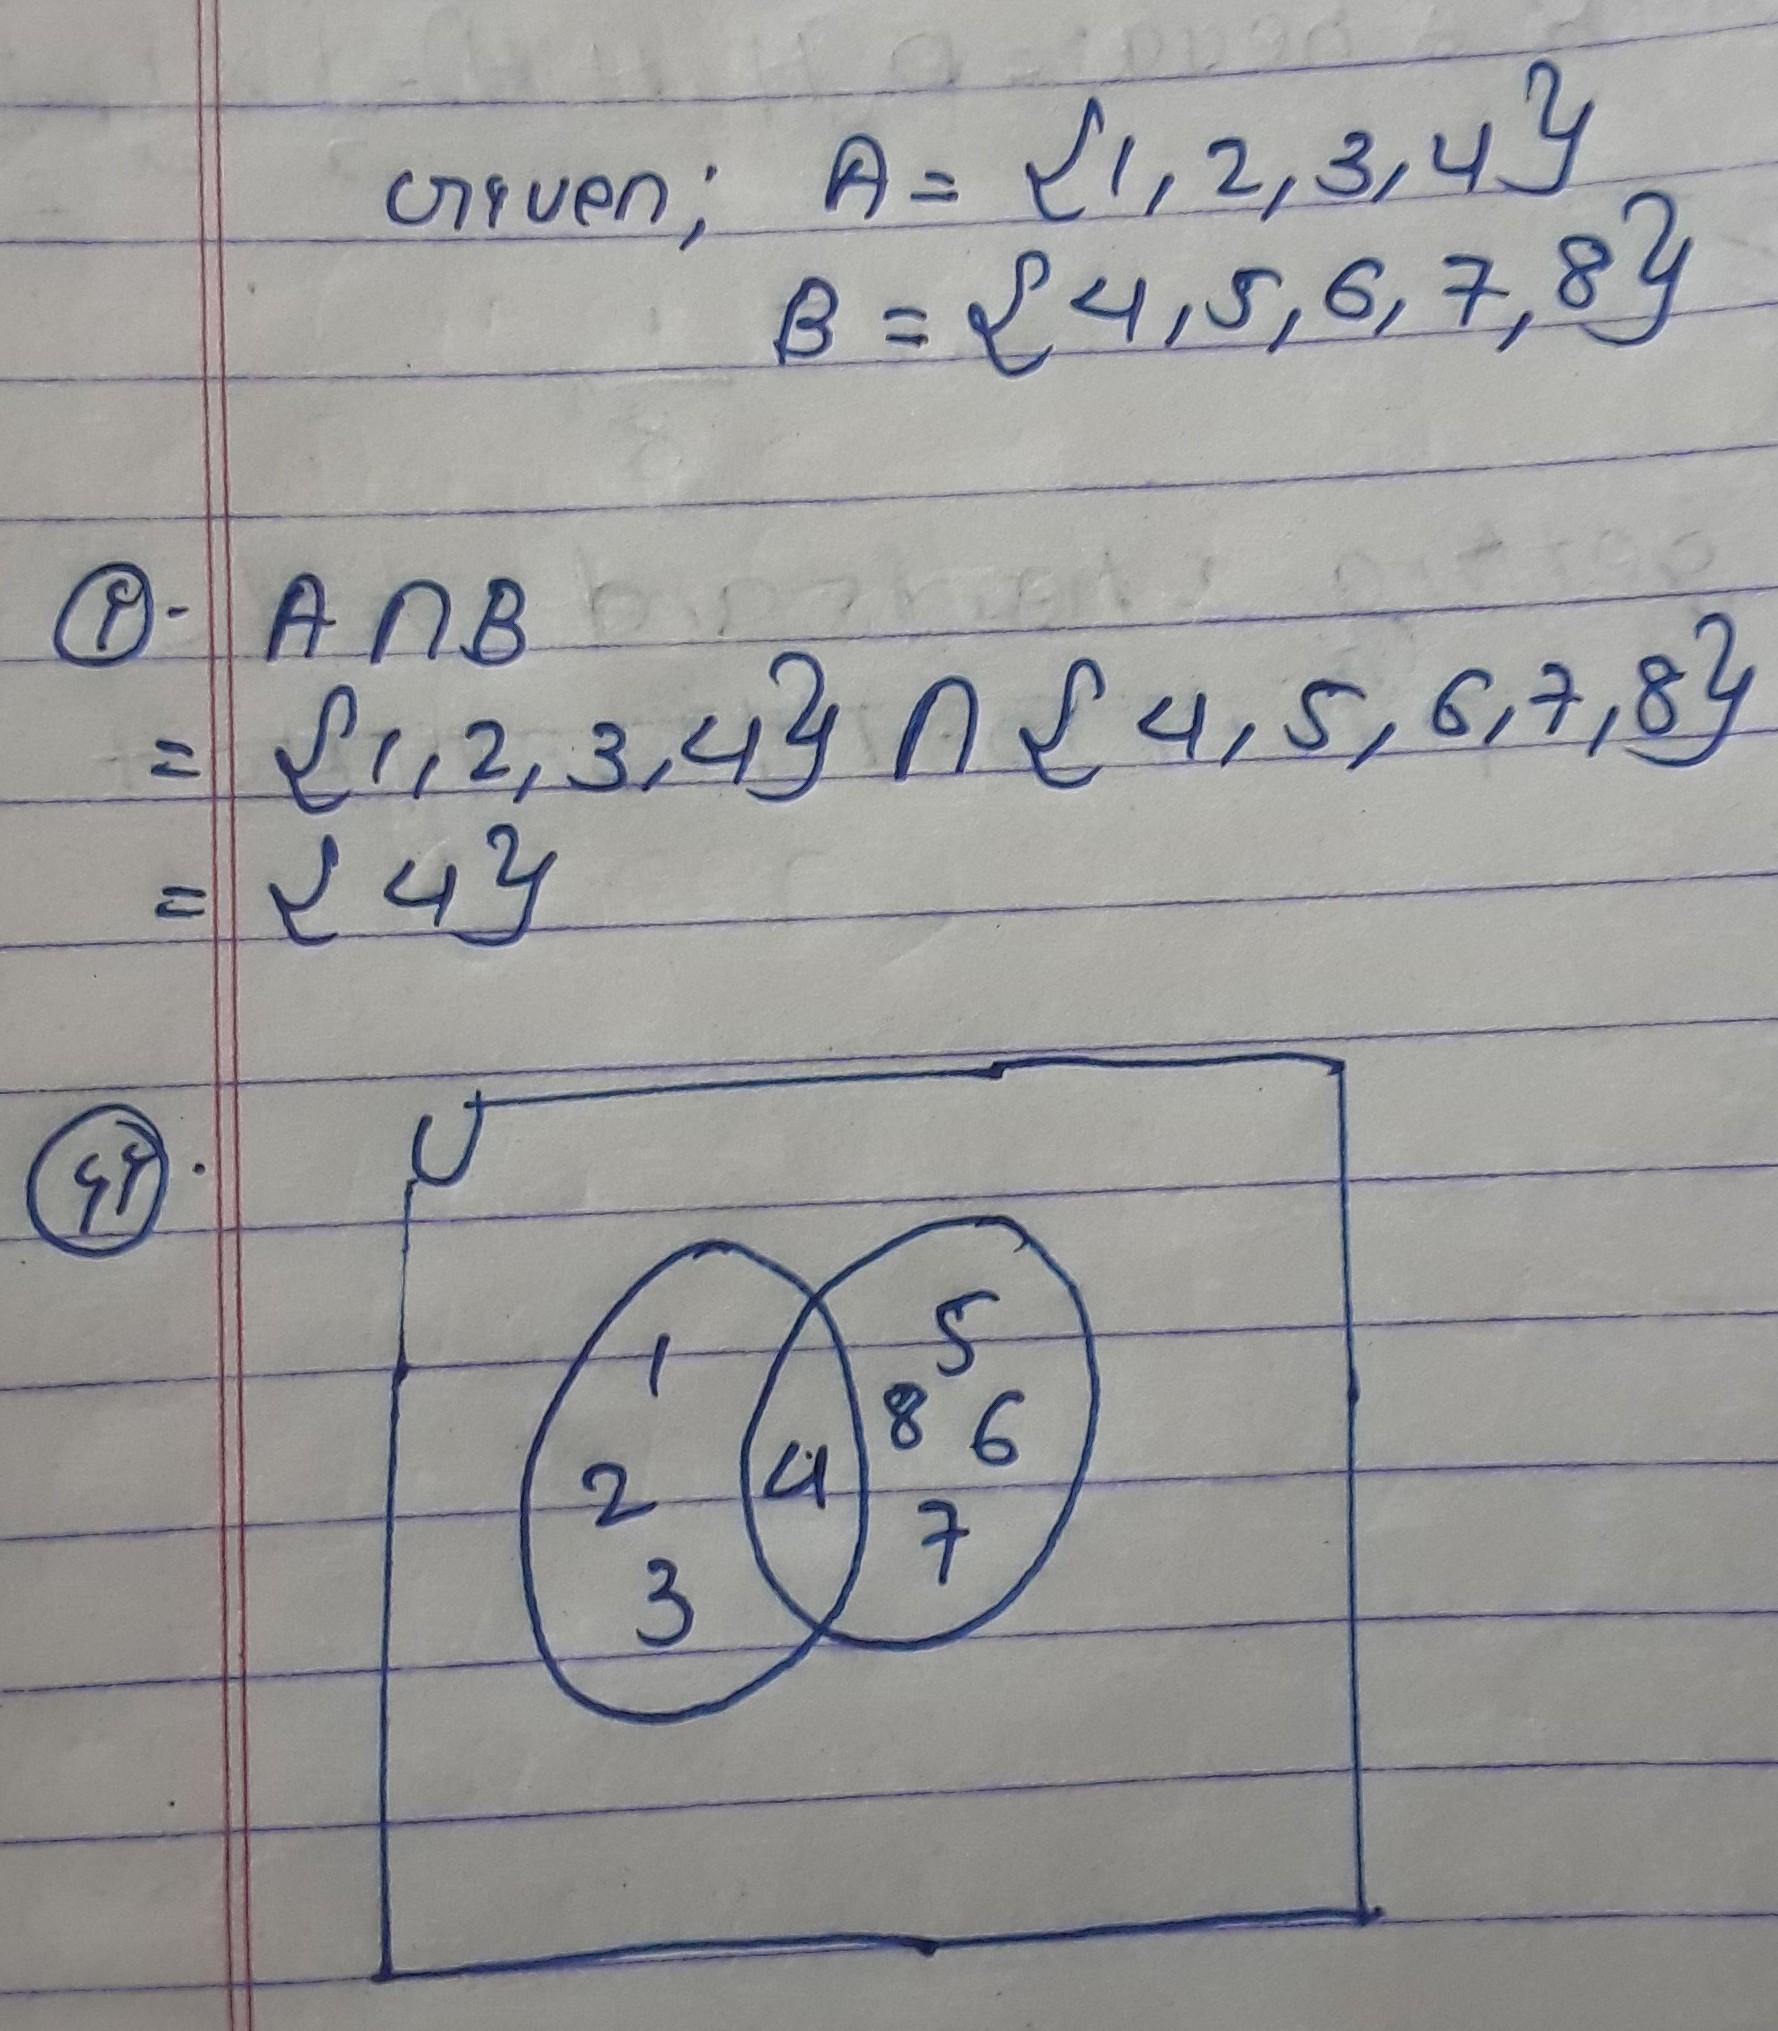 Given; A = {1, 2, 3, 4}
B = {4, 5, 6, 7, 8}
(i)- A∩B
= {1, 2, 3, 4} ∩ {4, 5, 6, 7, 8}
= {4}
(ii).
U
1 5
8 6
2 4
7
3